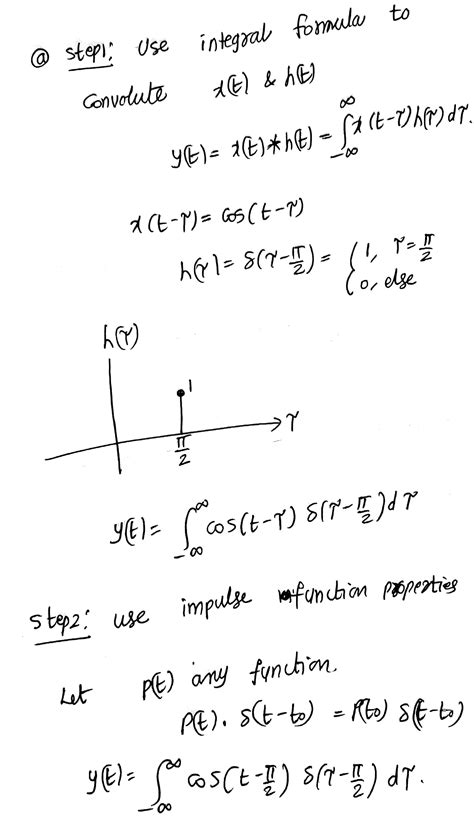 ⓐ step1: Use integral formula to
Convolute x(t) & h(t)
y(t) = x(t)*h(t) = ∫_{-∞}^{∞} x(t-τ)h(τ)dτ.
x(t-τ) = cos(t-τ)
h(τ) = δ(τ-π/2) = { 1, τ=π/2
0, else
h(τ)
1
τ
π/2
y(t) = ∫_{-∞}^{∞} cos(t-τ) δ(τ-π/2)dτ
step2: use impulse function properties
Let p(t) any function.
p(t). δ(t-t0) = p(t0) δ(t-t0)
y(t) = ∫_{-∞}^{∞} cos(t-π/2) δ(τ-π/2) dτ.